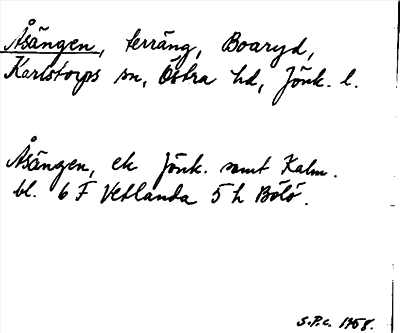 Åsängen, terräng, Boaryd,
Karlstorps sn, Östra hd, Jönk. l.
Åsängen, ek Jönk. samt Kalm.
bl. 6 F Vetlanda 5 h Bölö.
S.P.C. 1958.